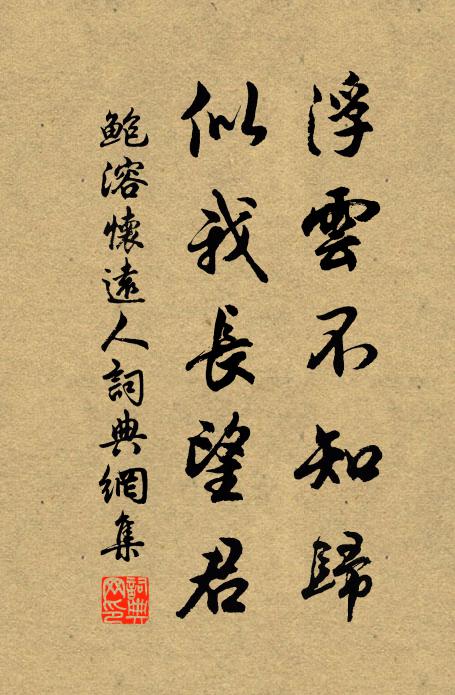 浮雲不知歸
似我長望君
鮑溶懷遠人詞典網集
詞典網印